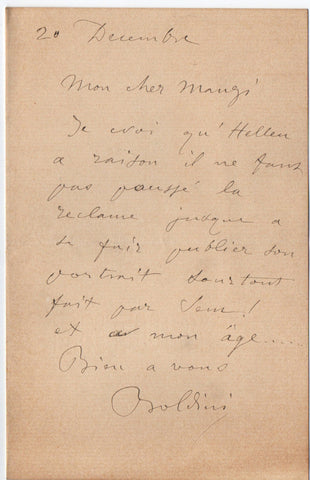 20 Decembre
Mon cher Mangi
Je croi qu'Helleu
a raison il ne faut
pas poussé la
reclame jusque a
se fair publier son
portrait surtout
fait par Sem!
et a mon âge.....
Bien a vous
Boldini